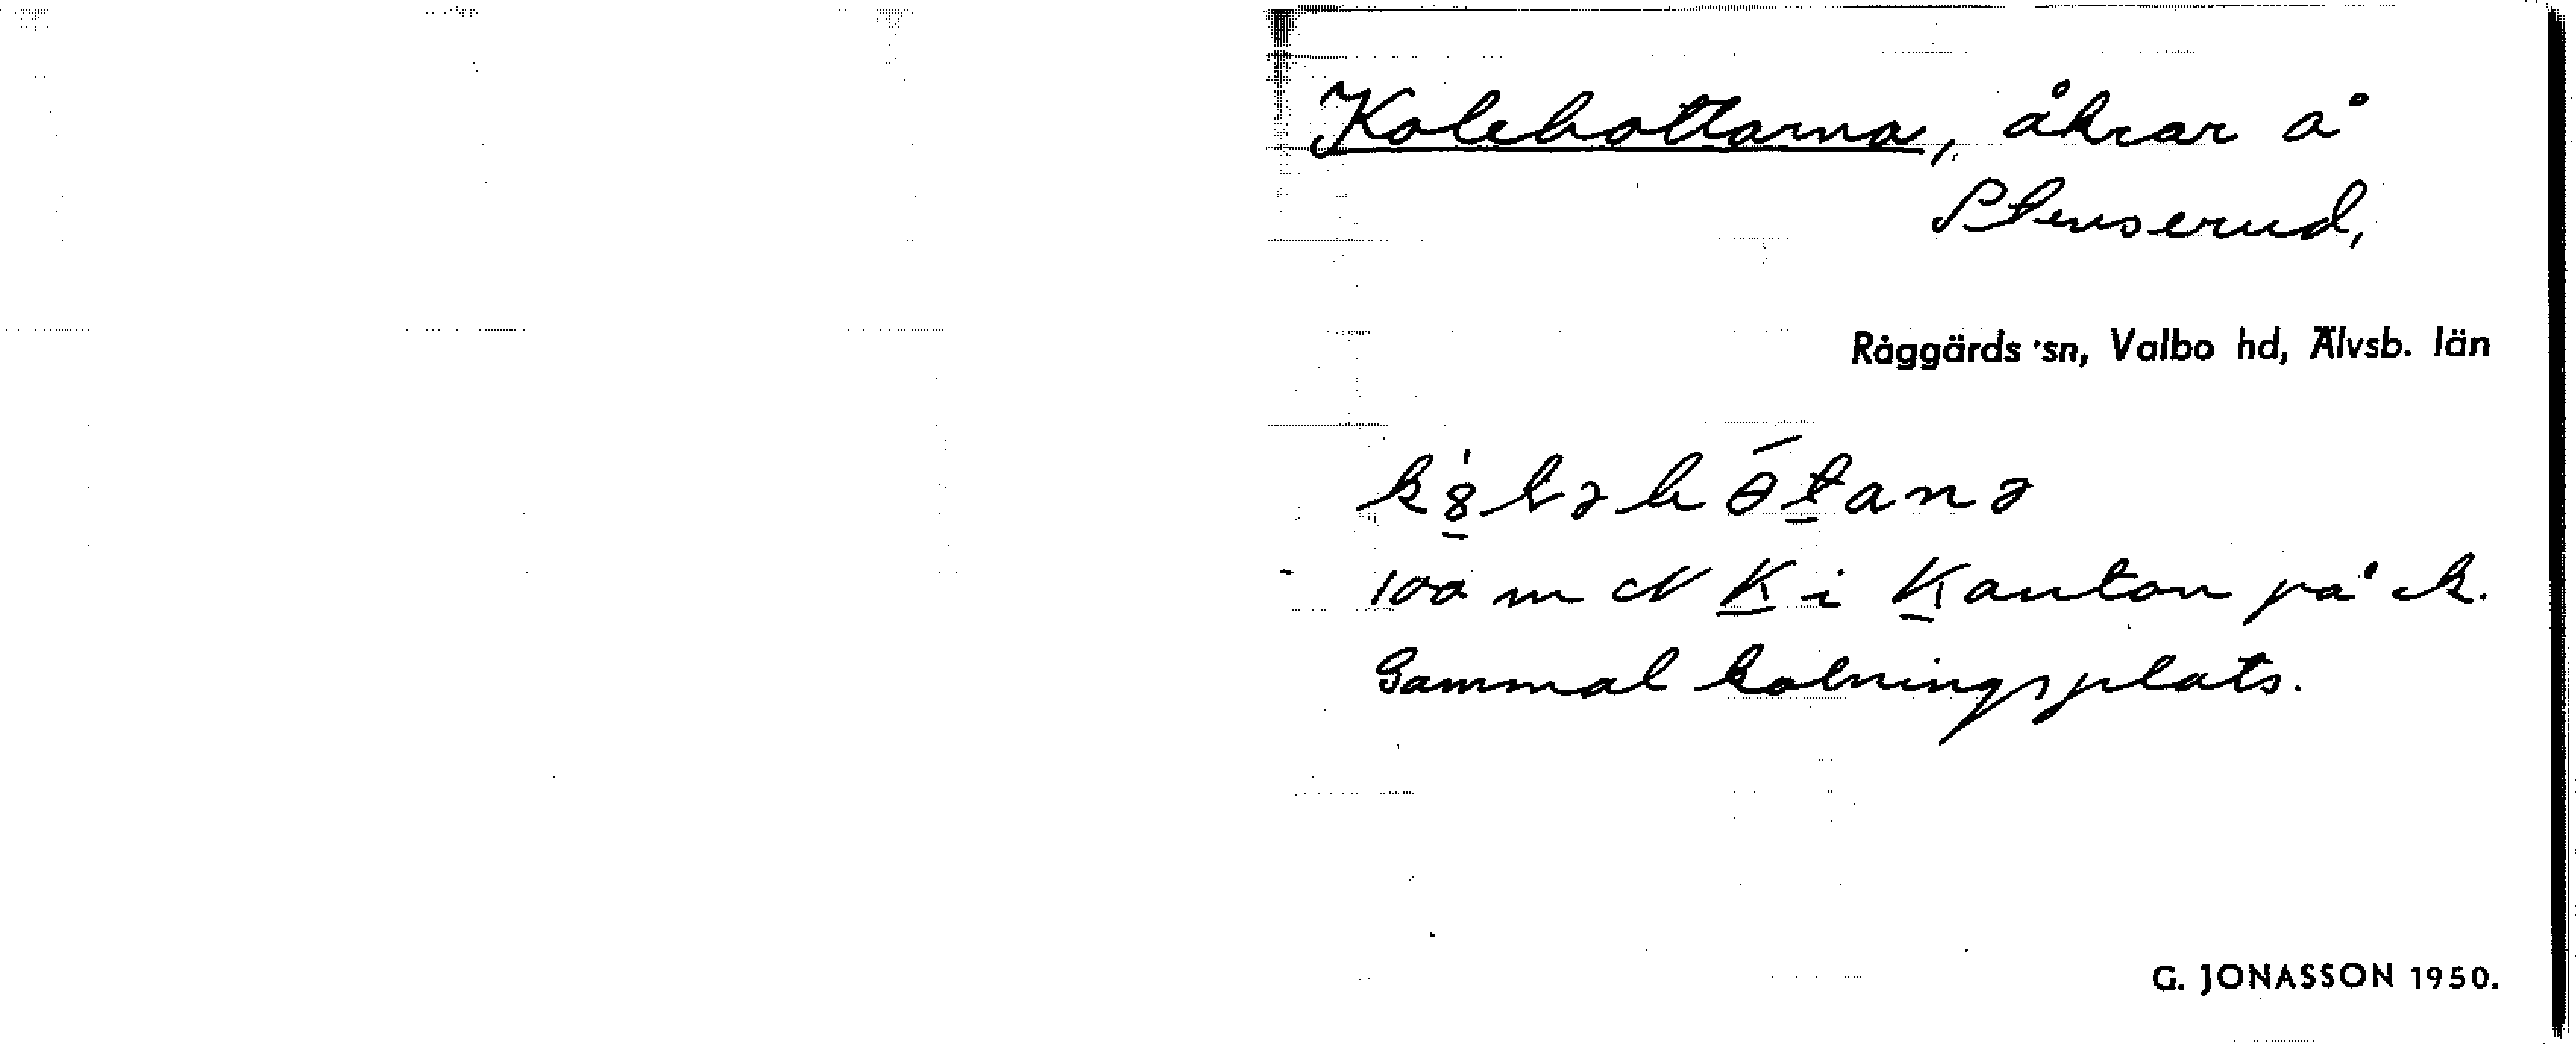 Kolebottarna, åkrar å
Stenserud,
Råggärds sn, Valbo hd, Älvsb. län
100 m N K i Kanton på k.
Gammal kolningsplats.
G. JONASSON 1950.